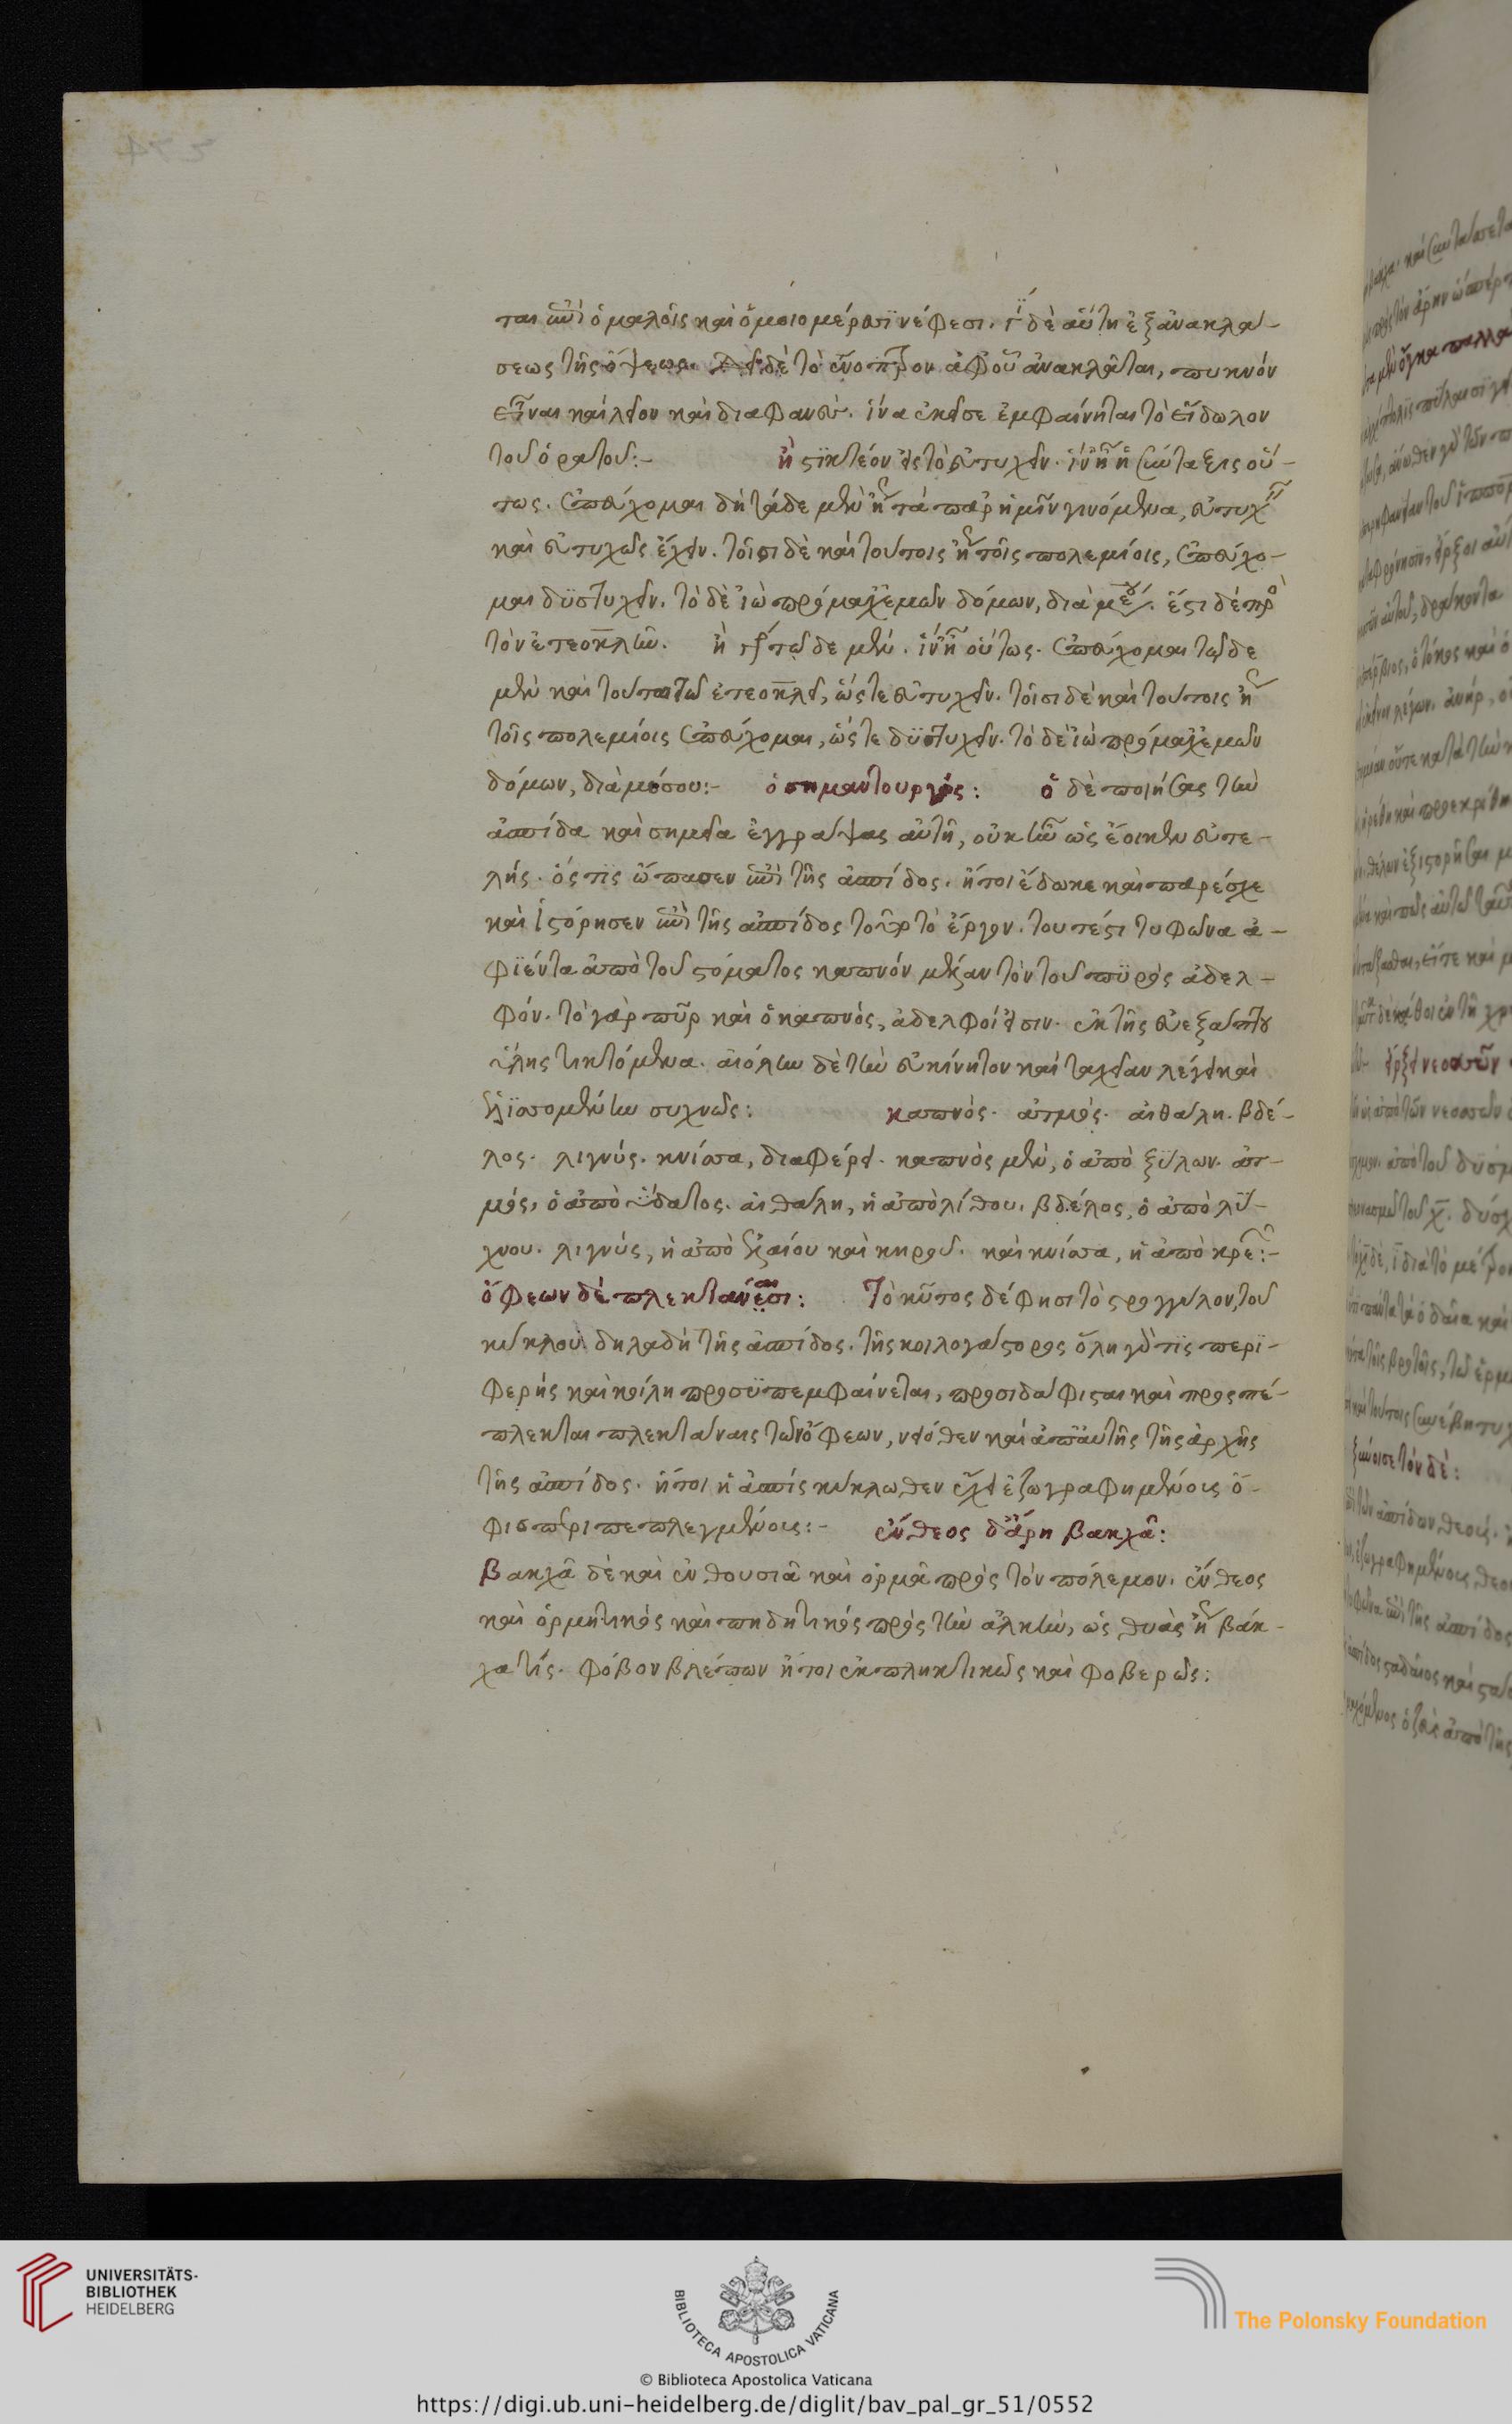 ται ἐπὶ ὁμαλοῖς καὶ ὁμοιομέρεσϊ νέφεσι. ἶρϊς δὲ αὕτη ἐξ ἀνακλά-
σεως τῆς ὄψεως. δεῖ δὲ τὸ ἔνοπτρον ἀφ' οὗ ἀνακλᾶται, πυκνόν
εἶναι καὶ λεῖον καὶ διαφανές. ἵνα ἐκεῖσε ἐμφαίνηται τὸ εἴδωλον
τοῦ ὁρατοῦ:-
ἢ στϊκτέον εἰς τὸ εὐτυχεῖν. ἵν' ἦ ἡ σύνταξις οὕ-
τως. ἐπεύχομαι δὴ τάδε μὲν ἤγουν τὰ παρ' ἡμῖν γινόμενα, εὐτυχεῖν
καὶ εὐτυχῶς ἔχειν. τοῖσι δὲ καὶ τούτοις ἤγουν τοῖς πολεμίοις, ἐπεύχο-
μαι δϋστυχεῖν. τὸ δὲ ἰὼ πρόμαχ' ἐμῶν δόμων, διὰ μέσου. ἔστι δὲ πρὸς
τὸν ἐτεοκλῆν. ἢ τῶδε μὲν. ἵν' ἦ οὕτως. ἐπεύχομαι τῶδε
μὲν καὶ τούτω τῶ ἐτεοκλεῖ, ὥστε εὐτυχεῖν. τοῖσι δὲ καὶ τούτοις ἤγουν
τοῖς πολεμίοις ἐπεύχομαι, ὥστε δϋστυχεῖν. τὸ δὲ ἰὼ πρόμαχ' ἐμῶν
δόμων, διὰ μέσου:- ὁ σημαντουργός: ὁ δὲ ποιήσας τὴν
ἀσπίδα καὶ σημεῖα ἐγγράψας αὐτῆ, οὐκ ἦν ὡς ἔοικεν εὐτε-
λής. ὅς τϊς ὤπασεν ἐπὶ τῆς ἀσπίδος. ἤτοι ἔδωκε καὶ παρέσχε
καὶ ἱστόρησεν ἐπὶ τῆς ἀσπίδος τοῦτο τὸ ἔργον. τουτέστι τυφῶνα ἀ-
φϊέντα ἀπὸ τοῦ στόματος καπνόν μέλαν τὸν τοῦ πϋρὸς ἀδελ-
φόν. τὸ γὰρ πῦρ καὶ ὁ καπνός, ἀδελφοί εἰσιν. ἐκ τῆς εὐεξάπτου
ὕλης τικτόμενα. αἰόλην δὲ τὴν εὐκίνητον καὶ ταχεῖαν λέγει καὶ
ἑλϊσσομένην συχνῶς: καπνὸς. ἀτμός. αἰθάλη. βδέ-
λος. λιγνύς. κνίσσα, διαφέρει. καπνὸς μὲν, ὁ ἀπὸ ξύλων. ἀτ-
μός, ὁ ἀπὸ ὕδατος. αἰθάλη, ἡ ἀπὸ λίθου. βδέλος, ὁ ἀπὸ λύ-
χνου. λιγνύς, ἡ ἀπὸ ἐλαίου καὶ κηροῦ. καὶ κνίσσα, ἡ ἀπὸ κρεῶν:-
ὄφεων δὲ πλεκτάναισι: Τὸ κῦτος δέ φησι τὸ στρογγύλον, τοῦ
κύκλου δηλαδὴ τῆς ἀσπίδος. τῆς κοιλογάστορος ὅλη γάρ τϊς περϊ-
φερὴς καὶ κοίλη προσϋπεμφαίνεται, προσηδάφισται καὶ προσπέ-
πλεκται πλεκτάναις τῶν ὄφεων, νεόθεν καὶ ἀπ' αὐτῆς τῆς ἀρχῆς
τῆς ἀσπίδος. ἤτοι ἡ ἀσπὶς κύκλωθεν ἔχει ἐζωγραφημένοις ὄ-
φισι περιπεπλεγμένοις:- ἔνθεος δ' ἄρη βακχᾶ:
βακχᾶ δὲ καὶ ἐνθουσιᾶ καὶ ὁρμᾶ πρὸς τὸν πόλεμον. ἔνθεος
καὶ ὁρμητικὸς καὶ πηδητικὸς πρὸς τὴν ἀλκὴν, ὡς θυὰς ἤγουν βάκ-
χα τίς. φόβον βλέπων ἤτοι ἐκπληκτικῶς καὶ φοβερῶς:
UNIVERSITÄTS-
BIBLIOTHEK
HEIDELBERG
BIBLIOTECA APOSTOLICA VATICANA
The Polonsky Foundation
© Biblioteca Apostolica Vaticana
https://digi.ub.uni-heidelberg.de/diglit/bav_pal_gr_51/0552